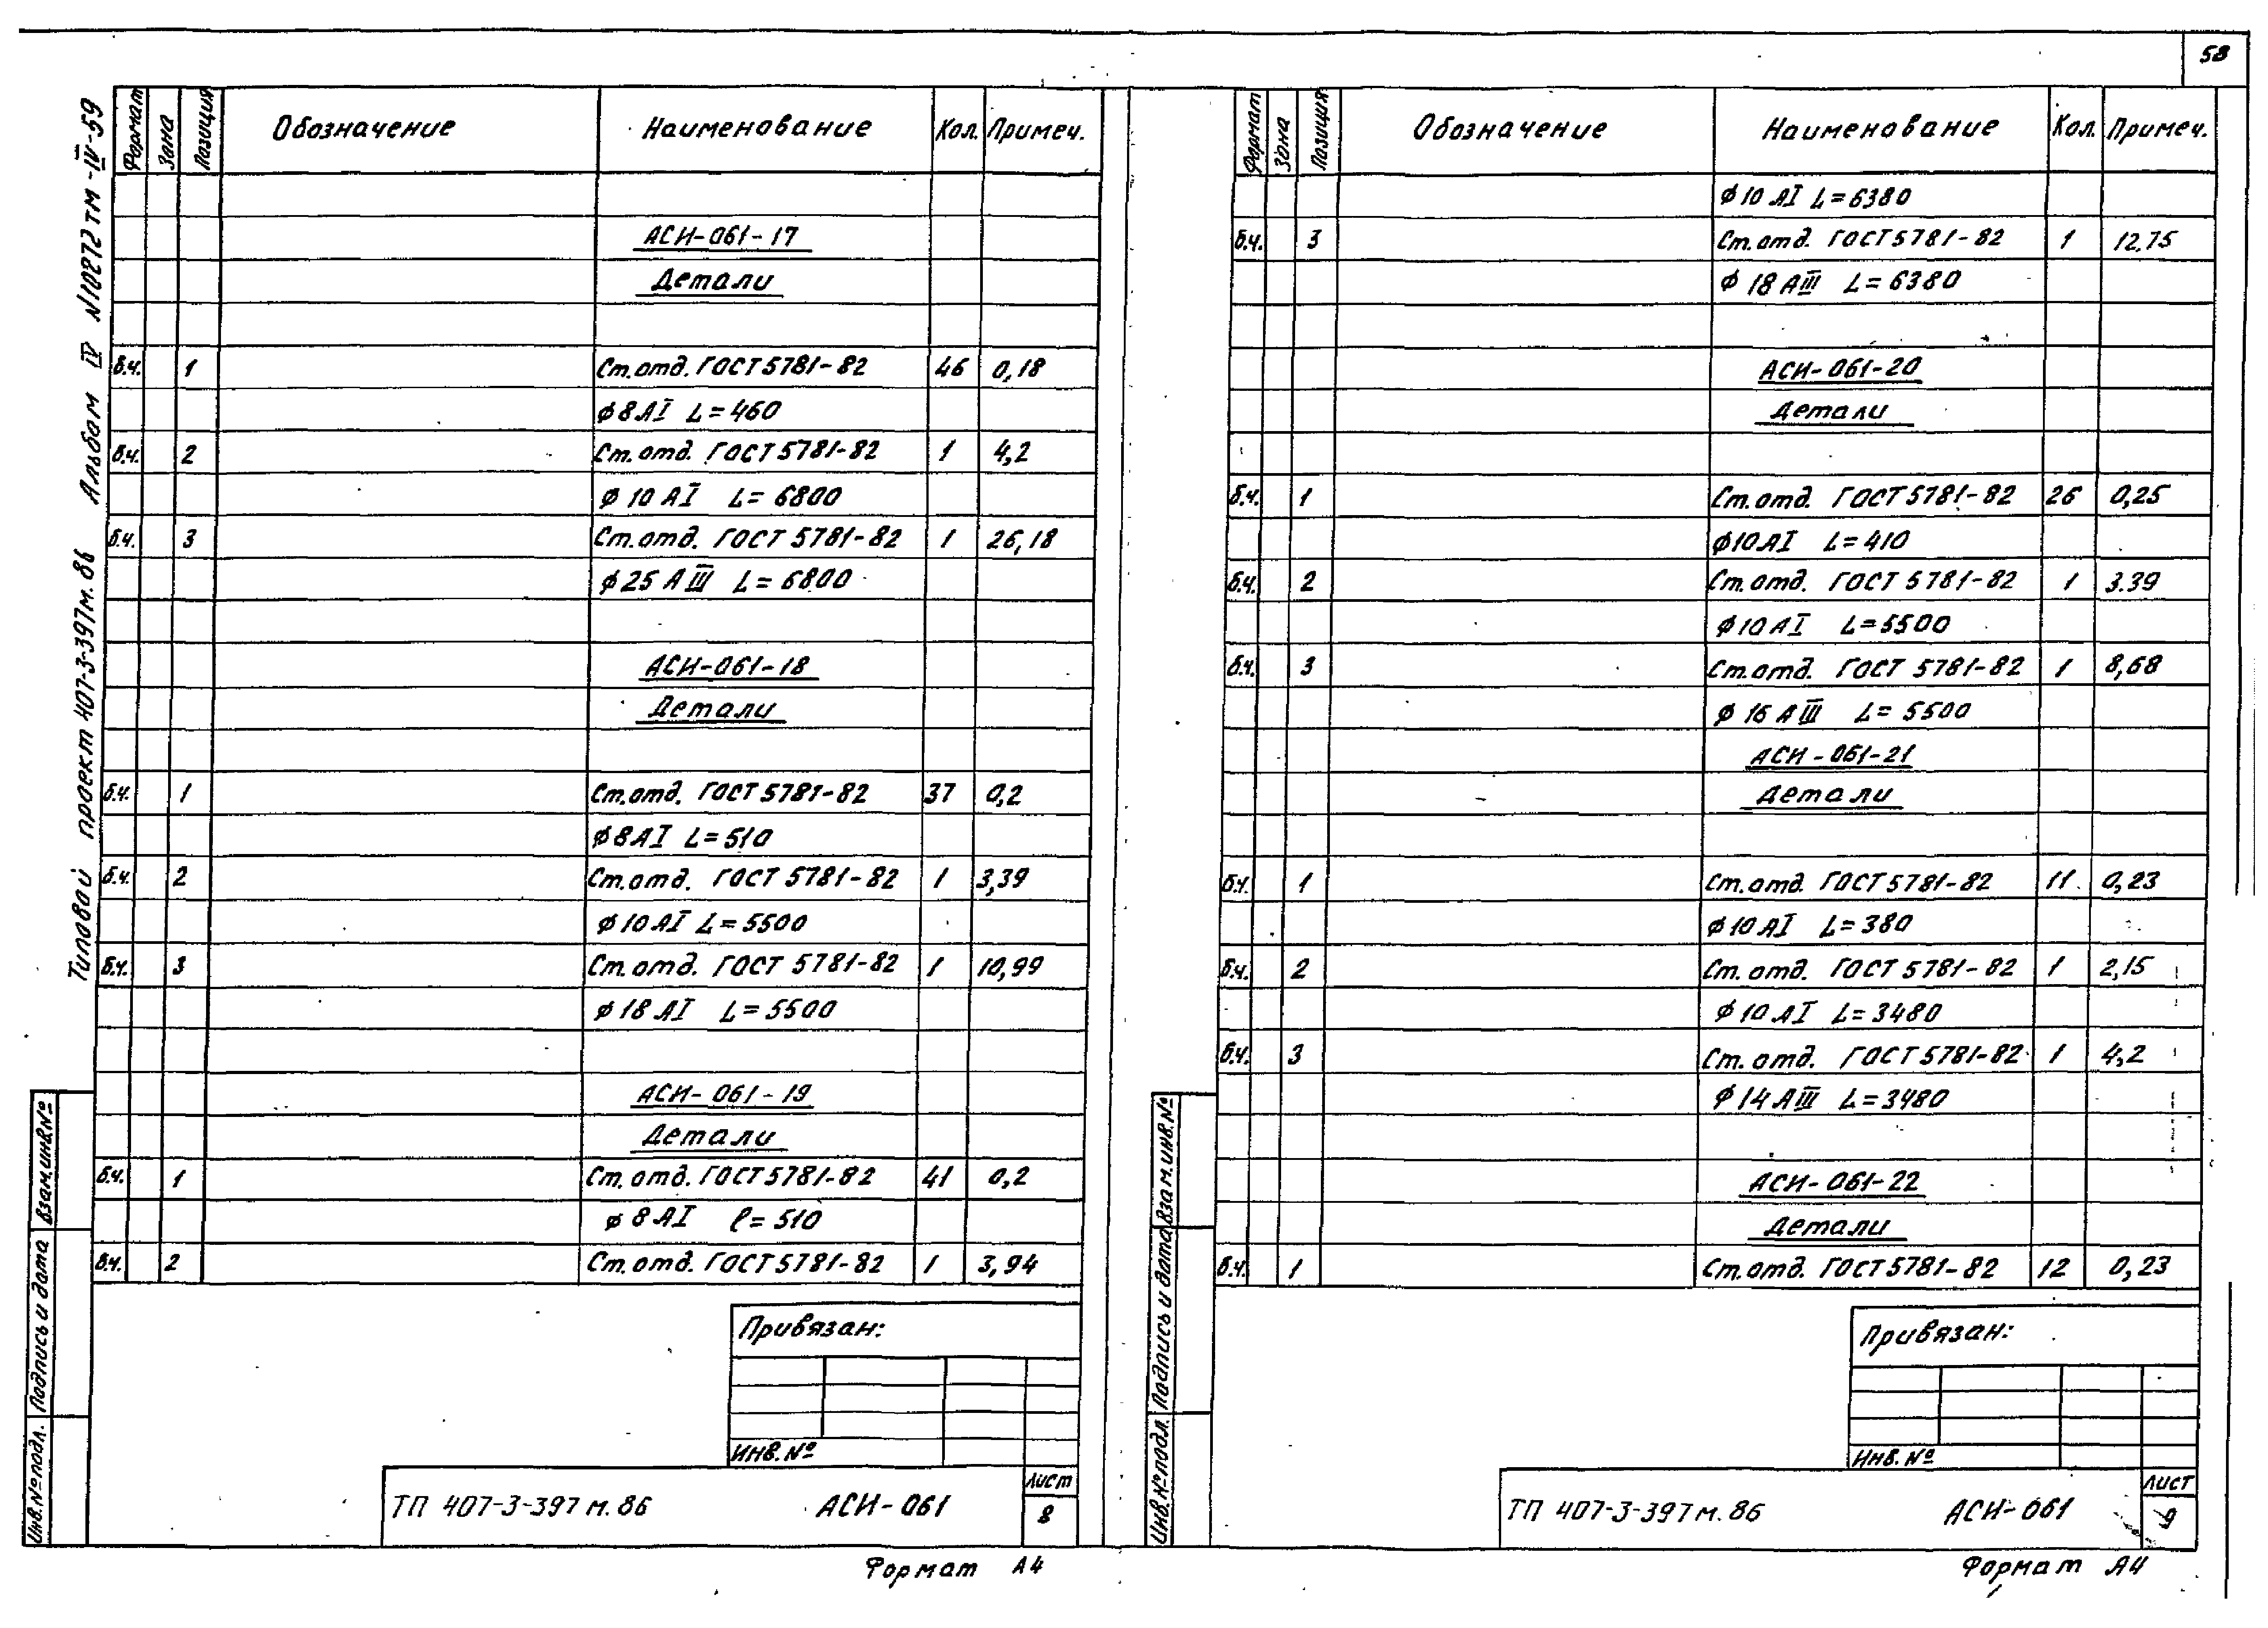 58
Типовой проект 407-3-397м.86 Альбом IV N10272тм-IV-59
Формат Зона Позиция Обозначение Наименование Кол. Примеч.
АСИ-061-17
Детали
б.ч. 1 Ст.отд. ГОСТ 5781-82 46 0,18
ϕ8АI L=460
б.ч. 2 Ст.отд. ГОСТ 5781-82 1 4,2
ϕ10АI L=6800
б.ч. 3 Ст.отд. ГОСТ 5781-82 1 26,18
ϕ25АIII L=6800
АСИ-061-18
Детали
б.ч. 1 Ст.отд. ГОСТ 5781-82 37 0,2
ϕ8АI L=510
б.ч. 2 Ст.отд. ГОСТ 5781-82 1 3,39
ϕ10АI L=5500
б.ч. 3 Ст.отд. ГОСТ 5781-82 1 10,99
ϕ18АI L=5500
АСИ-061-19
Детали
б.ч. 1 Ст.отд. ГОСТ 5781-82 41 0,2
ϕ8АI ℓ=510
б.ч. 2 Ст.отд. ГОСТ 5781-82 1 3,94
Привязан:
Инв.№
ТП 407-3-397м.86 АСИ-061
Лист
8
Инв.№подл. Подпись и дата Взам.инв.№
Формат А4
Формат Зона Позиция Обозначение Наименование Кол. Примеч.
ϕ10АI L=6380
б.ч. 3 Ст.отд. ГОСТ 5781-82 1 12.75
ϕ18АIII L=6380
АСИ-061-20
Детали
б.ч. 1 Ст.отд. ГОСТ 5781-82 26 0,25
ϕ10АI L=410
б.ч. 2 Ст.отд. ГОСТ 5781-82 1 3.39
ϕ10АI L=5500
б.ч. 3 Ст.отд. ГОСТ 5781-82 1 8,68
ϕ16АIII L=5500
АСИ-061-21
Детали
б.ч. 1 Ст.отд. ГОСТ 5781-82 11 0,23
ϕ10АI L=380
б.ч. 2 Ст.отд. ГОСТ 5781-82 1 2,15
ϕ10АI L=3480
б.ч. 3 Ст.отд. ГОСТ 5781-82 1 4,2
ϕ14АIII L=3480
АСИ-061-22
Детали
б.ч. 1 Ст.отд. ГОСТ 5781-82 12 0,23
Привязан:
Инв.№
ТП 407-3-397м.86 АСИ-061
Лист
9
Инв.№подл. Подпись и дата Взам.инв.№
Формат А4